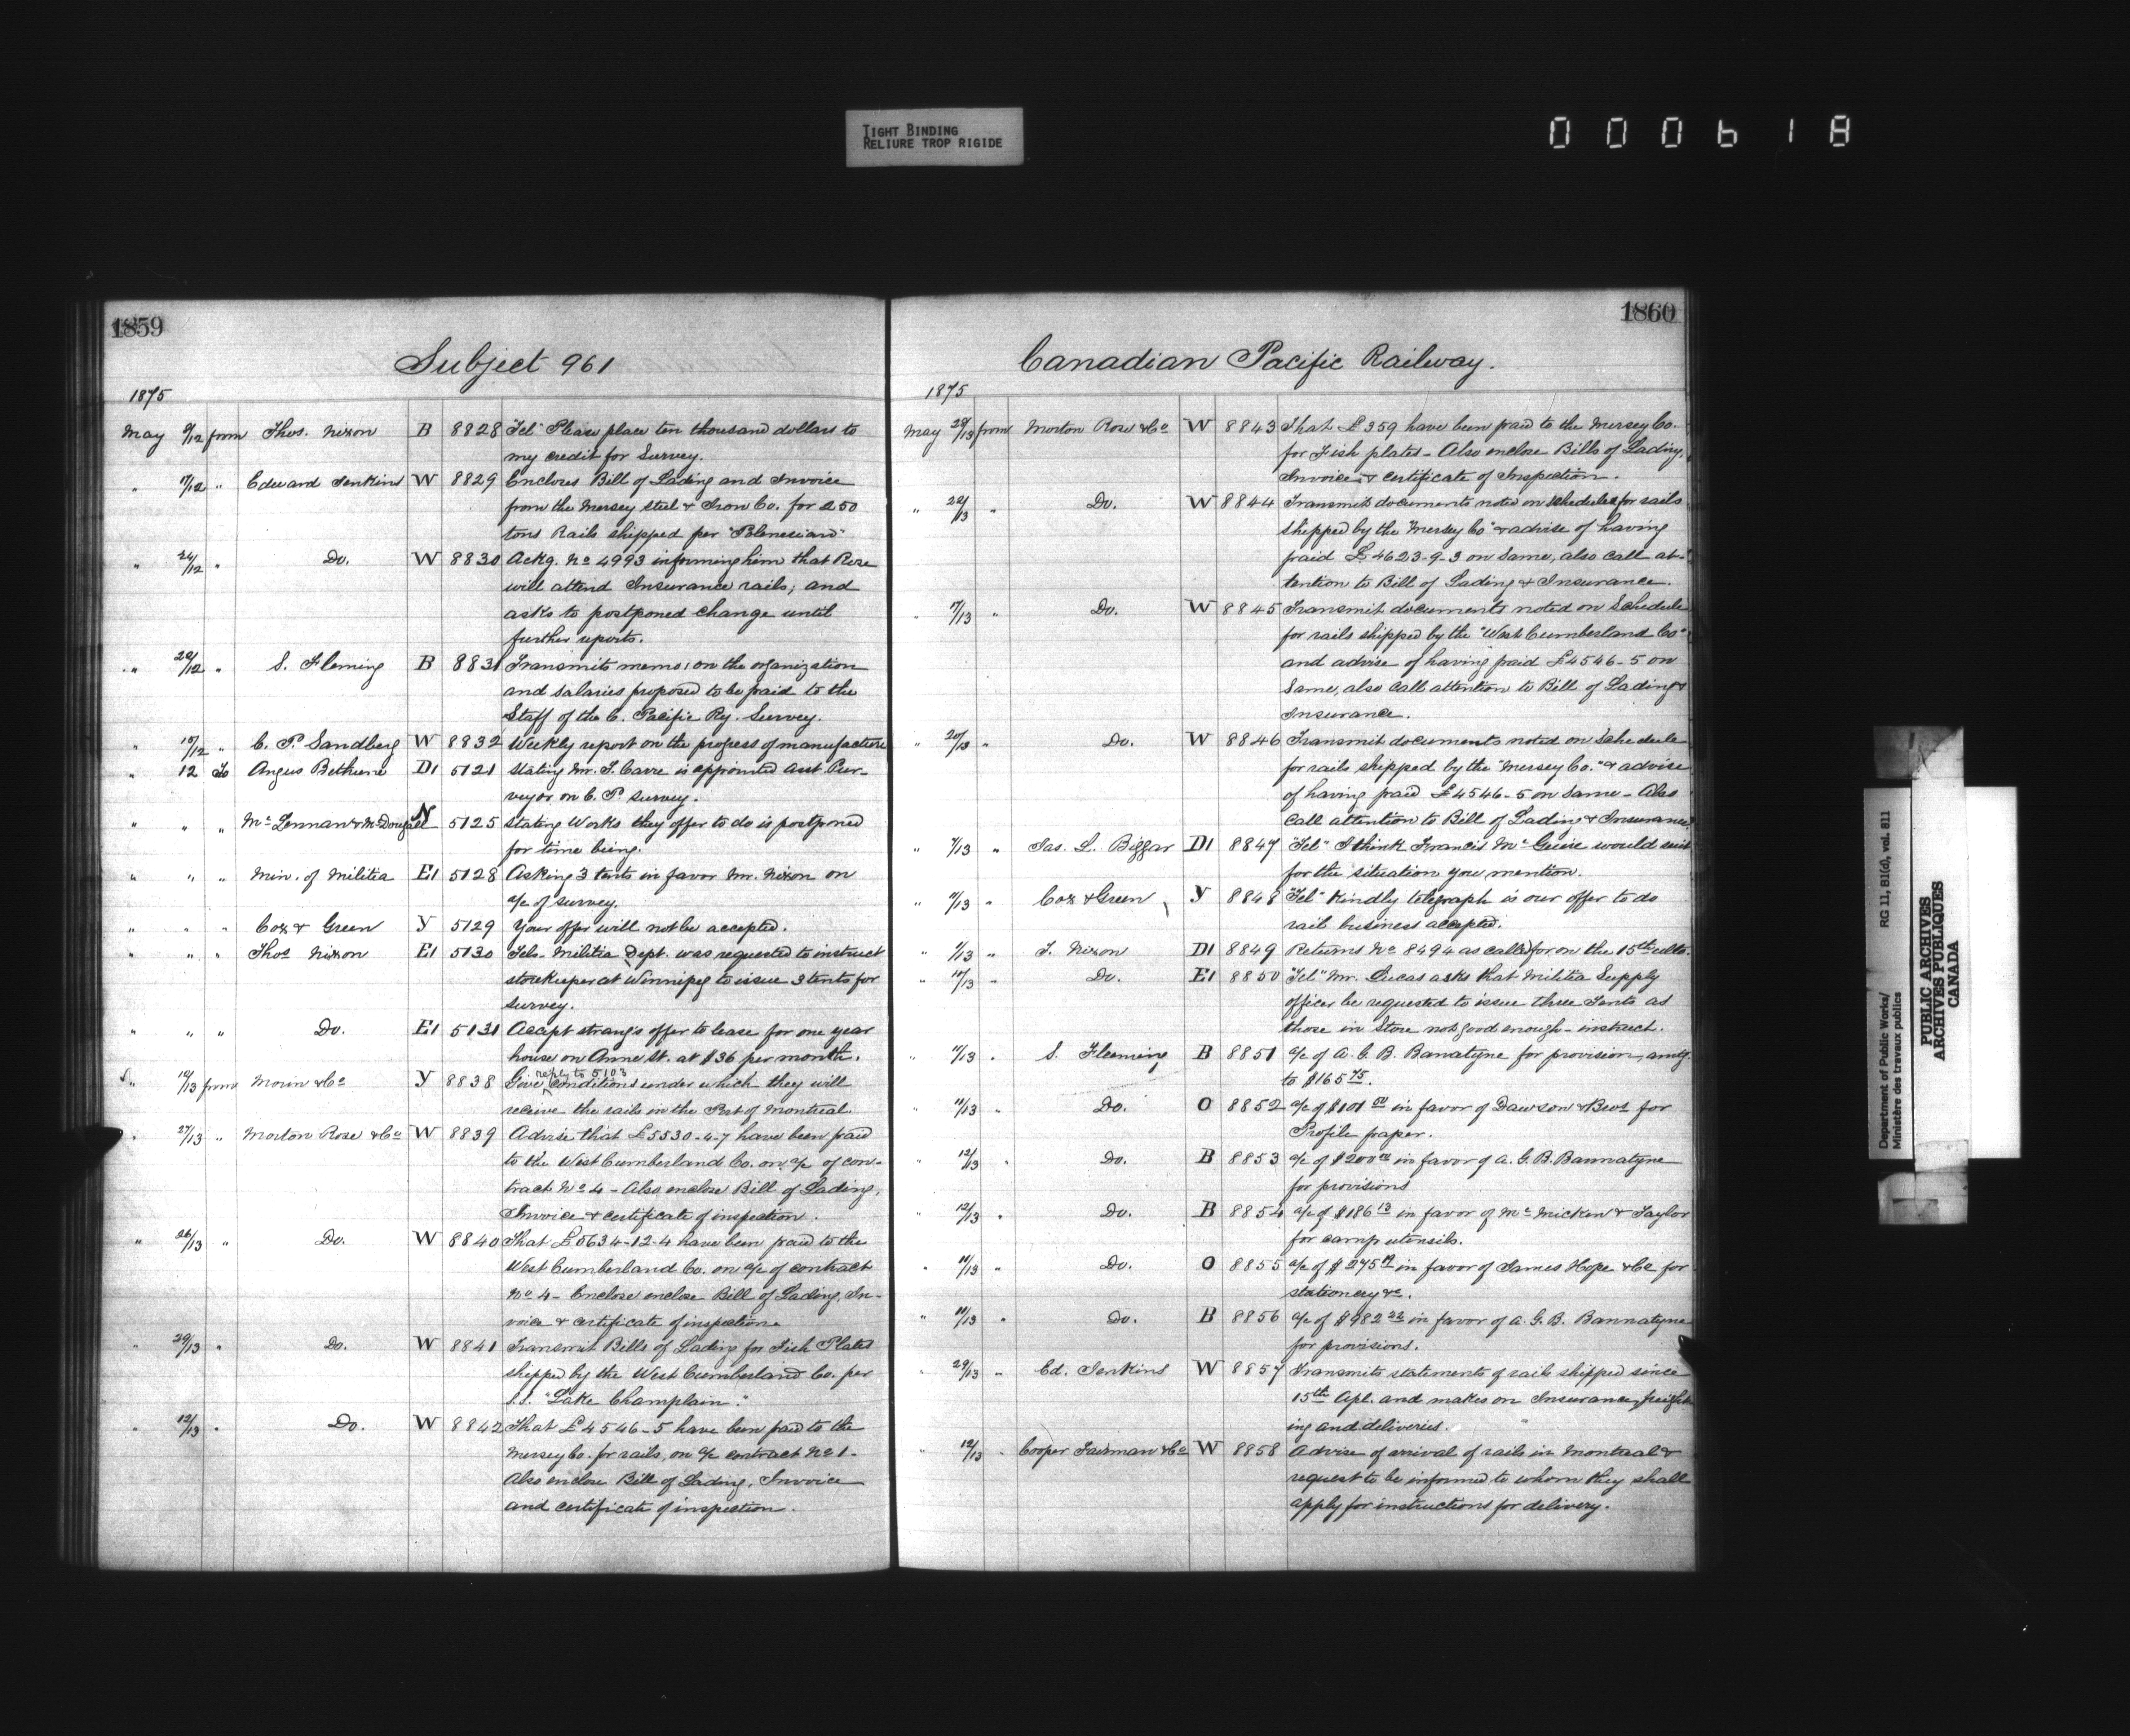 TIGHT BINDING
RELIURE TROP RIGIDE
000618
1859
Subject 961
1875
May 9/12 from Thos. Nixon B 8828 Tel" Please place ten thousand dollars to
my credit for Survey.
" 17/12 " Edward Jenkins W 8829 Encloses Bill of Lading and Invoice
from the Mersey Steel & Iron Co. for 250
tons Rails shipped per "Polynesian"
" 24/12 " Do. W 8830 Ackg. No 4993 informing him that Rose
will attend Insurance rails; and
asks to postponed change until
further reports.
" 20/12 " S. Fleming B 8831 Transmits memo: on the organization
and salaries proposed to be paid to the
Staff of the C. Pacific Ry. Survey.
" 10/12 " C. P. Sandberg W 8832 Weekly report on the progress of manufacture
" 12 To Angus Bethune D1 5121 Stating Mr. T. Carre is appointed asst Sur-
veyor on C. P. Survey.
" " " McLennan & McDougall N 5125 Stating Works they offer to do is postponed
for time being.
" " " Min. of Militia E1 5128 Asking 3 tents in favor Mr. Nixon on
a/c of survey.
" " " Cox & Green Y 5129 Your offer will not be accepted.
" " " Thos Nixon E1 5130 Tel- Militia Dept. was requested to instruct
storekeeper at Winnipeg to issue 3 tents for
survey.
" " " Do. E1 5131 Accept strang's offer to lease for one year
house on Anne St. at $36 per month.
" 12/13 from Morin & Co Y 8838 Give conditions under which they will
reply to 5103
receive the rails in the Port of Montreal.
" 27/13 " Morton Rose & Co W 8839 Advise that £5530-4-7 have been paid
to the West Cumberland Co. on a/c of con-
tract No 4 - Also enclose Bill of Lading,
Invoice & certificate of inspection.
" 26/13 " Do. W 8840 That £5634-12-4 have been paid to the
West Cumberland Co. on a/c of contract
No 4 - Enclose enclose Bill of Lading, In-
voice & certificate of inspection.
" 29/13 " Do. W 8841 Transmit Bills of Lading for Fish Plates
shipped by the West Cumberland Co. per
S.S. "Lake Champlain."
" 12/13 " Do. W 8842 That £4546-5 have been paid to the
Mersey Co. for rails, on a/c contract No 1-
Also enclose Bill of Lading, Invoice
and certificate of inspection.
1860
Canadian Pacific Railway.
1875
May 29/13 from Morton Rose & Co W 8843 That £359 have been paid to the Mersey Co.
for Fish plates - Also enclose Bills of Lading,
Invoice & certificate of Inspection.
" 22/13 " Do. W 8844 Transmit documents noted on schedule for rails
shipped by the "Mersey Co" & advise of having
paid £4623-9-3 on same, also call at-
tention to Bill of Lading & Insurance.
" 17/13 " Do. W 8845 Transmit documents noted on Schedule
for rails shipped by the "West Cumberland Co"
and advise of having paid £4546-5 on
Same, also call attention to Bill of Lading &
Insurance.
" 20/13 " Do. W 8846 Transmit documents noted on Schedule
for rails shipped by the "Mersey Co." & advise
of having paid £4546-5 on same - Also
call attention to Bill of Lading & Insurance.
" 7/13 " Jas. L. Biggar D1 8847 "Tel" I think Francis would suit
for the situation you mention.
" 11/13 " Cox & Green Y 8848 "Tel" Kindly telegraph is our offer to do
rail business accepted.
" 1/13 " T. Nixon D1 8849 Returns No 8494 as called for on the 15th ulto.
" 10/13 " Do. E1 8850 "Tel" Mr. Lucas asks that Militia Supply
officer be requested to issue three Tents as
those in Store not good enough - instruct.
" 11/13 " S. Fleming B 8851 a/c of A. G. B. Banatyne for provision, amtg
to $165 75.
" 11/13 " Do. O 8852 a/c of $101 50 in favor of Dawson & Bros for
Profile paper.
" 12/13 " Do. B 8853 a/c of $200 in favor of A. G. B. Bannatyne
for provisions
" 12/13 " Do. B 8854 a/c of $186 13 in favor of McMicken & Taylor
for camp utensils.
" 11/13 " Do. O 8855 a/c of $275 in favor of James Hope & Co for
stationery &c.
" 11/13 " Do. B 8856 a/c of $982 22 in favor of A. G. B. Bannatyne
for provisions.
" 29/13 " Ed. Jenkins W 8857 Transmits statements of rails shipped since
15th Apl. and makes on Insurance, freight-
ing and deliveries.
" 12/13 " Cooper Fairman & Co W 8858 Advise of arrival of rails in Montreal &
request to be informed to whom they shall
apply for instructions for delivery.
Department of Public Works/
Ministère des travaux publics
RG 11, B1(d), vol. 811
PUBLIC ARCHIVES
ARCHIVES PUBLIQUES
CANADA